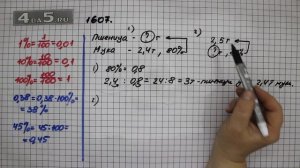 4 5
1607.
1% = 1/100 = 0,01
10% = 10/100 = 0,1
100% = 100/100 = 1
0,38 = 0,38·100% =
= 38%
45% = 45:100 =
= 0,45
1)
Пшеница - ? т
Мука - 2,4т, 80%
1) 80% = 0,8
2,4 : 0,8 = 24:8 = 3т - пшеницы
2,4т муки.
2)
2)
2,5т
?